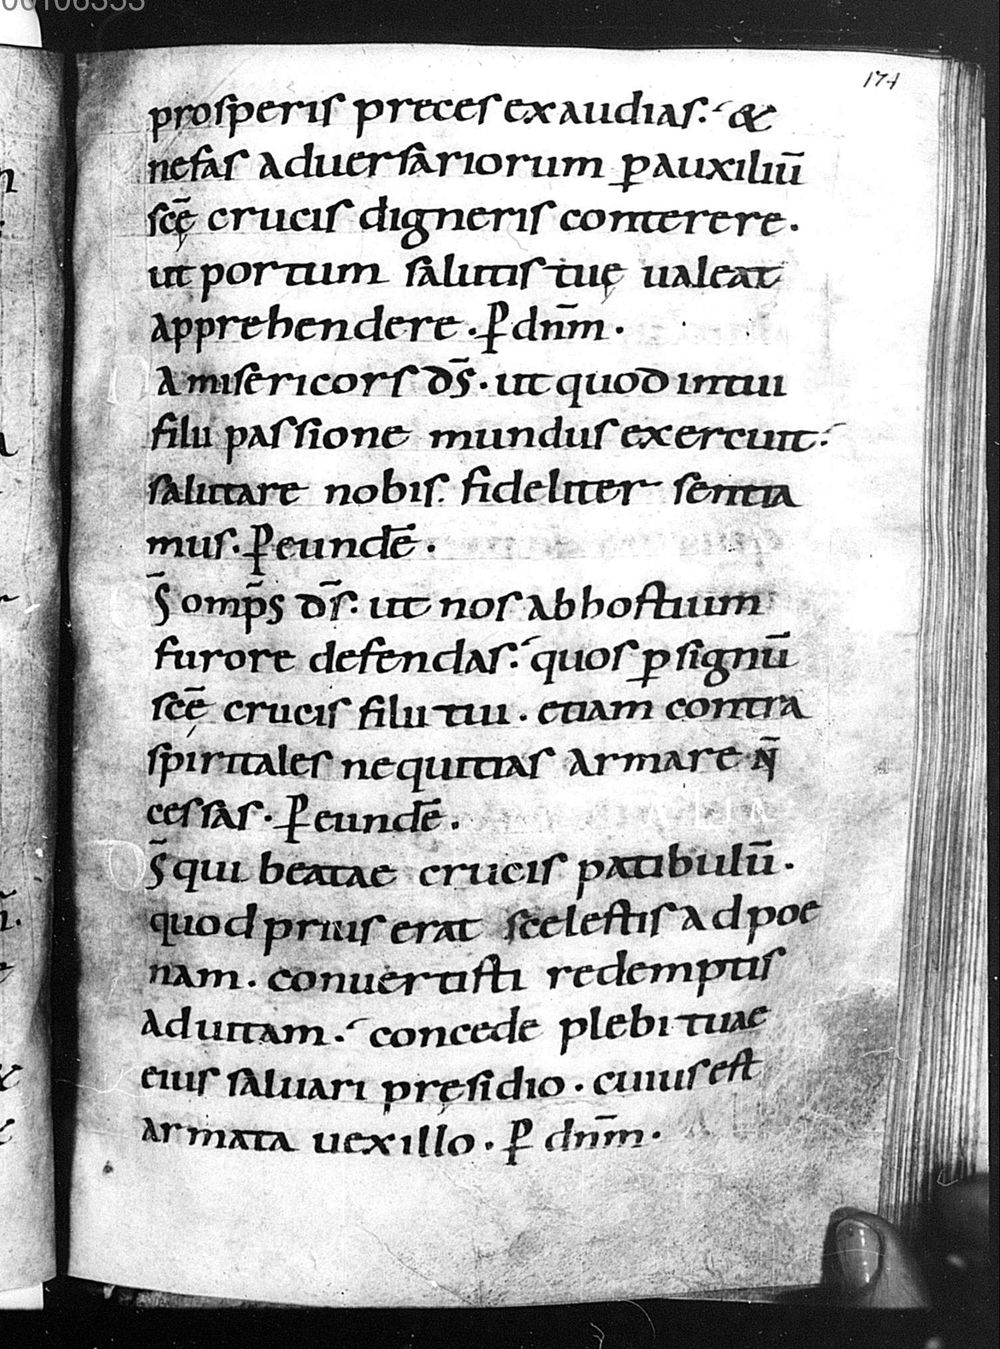 00106353
174
prosperis preces exaudias. &
nefas aduersariorum ꝑ auxiliū
scę̄ crucis digneris conterere.
ut portum salutis tuę ualeat
apprehendere. ꝑ dnm̄.
A misericors ds̄. ut quod intuui
filii passione mundus exercuit:
salutare nobis fideliter sentia
mus. ꝑ eundē.
S̄ omp̄s ds̄. ut nos ab hostium
furore defendas: quos ꝑ signū
scę̄ crucis filii tui. etiam contra
spiritales nequitias armare n̄
cessas. ꝑ eundē.
S̄ qui beatae crucis patibulū.
quod prius erat scelestis ad poe
nam. conuertisti redemptis
ad uitam. concede plebi tuae
eius saluari pręsidio. cuius est
armata uexillo. ꝑ dnm̄.